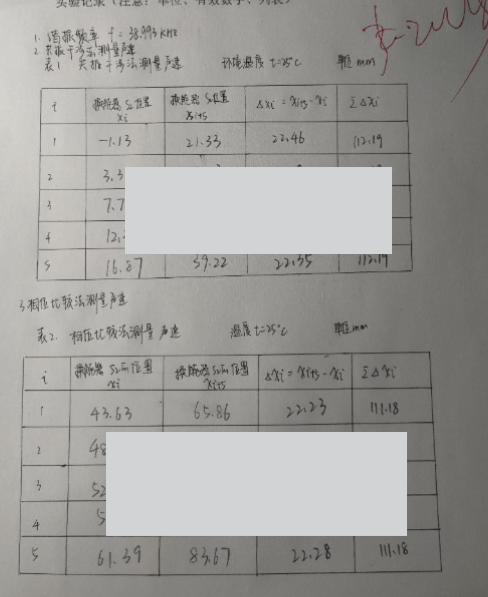 实验记录（注意：单位、有效数字、列表）
1. 谐振频率 f = 38.993 kHz
2. 共振干涉法测量声速
表1 共振干涉法测量声速 环境温度 t=25℃ 单位 mm
i 换能器 S₂ 位置 xi 换能器 S₂位置 xi+5 Δxi = xi+5 - xi ΣΔxi
1 -1.13 21.33 22.46 112.19
2 3.3
3 7.7
4 12.
5 16.87 39.22 22.35 112.19
3.相位比较法测量声速
表2. 相位比较法测量声速 温度 t=25℃ 单位 mm
i 换能器 S₂的位置 xi 换能器 S₂的位置 xi+5 Δxi = xi+5 - xi ΣΔxi
1 43.63 65.86 22.23 111.18
2 48
3 52
4 5
5 61.39 83.67 22.28 111.18